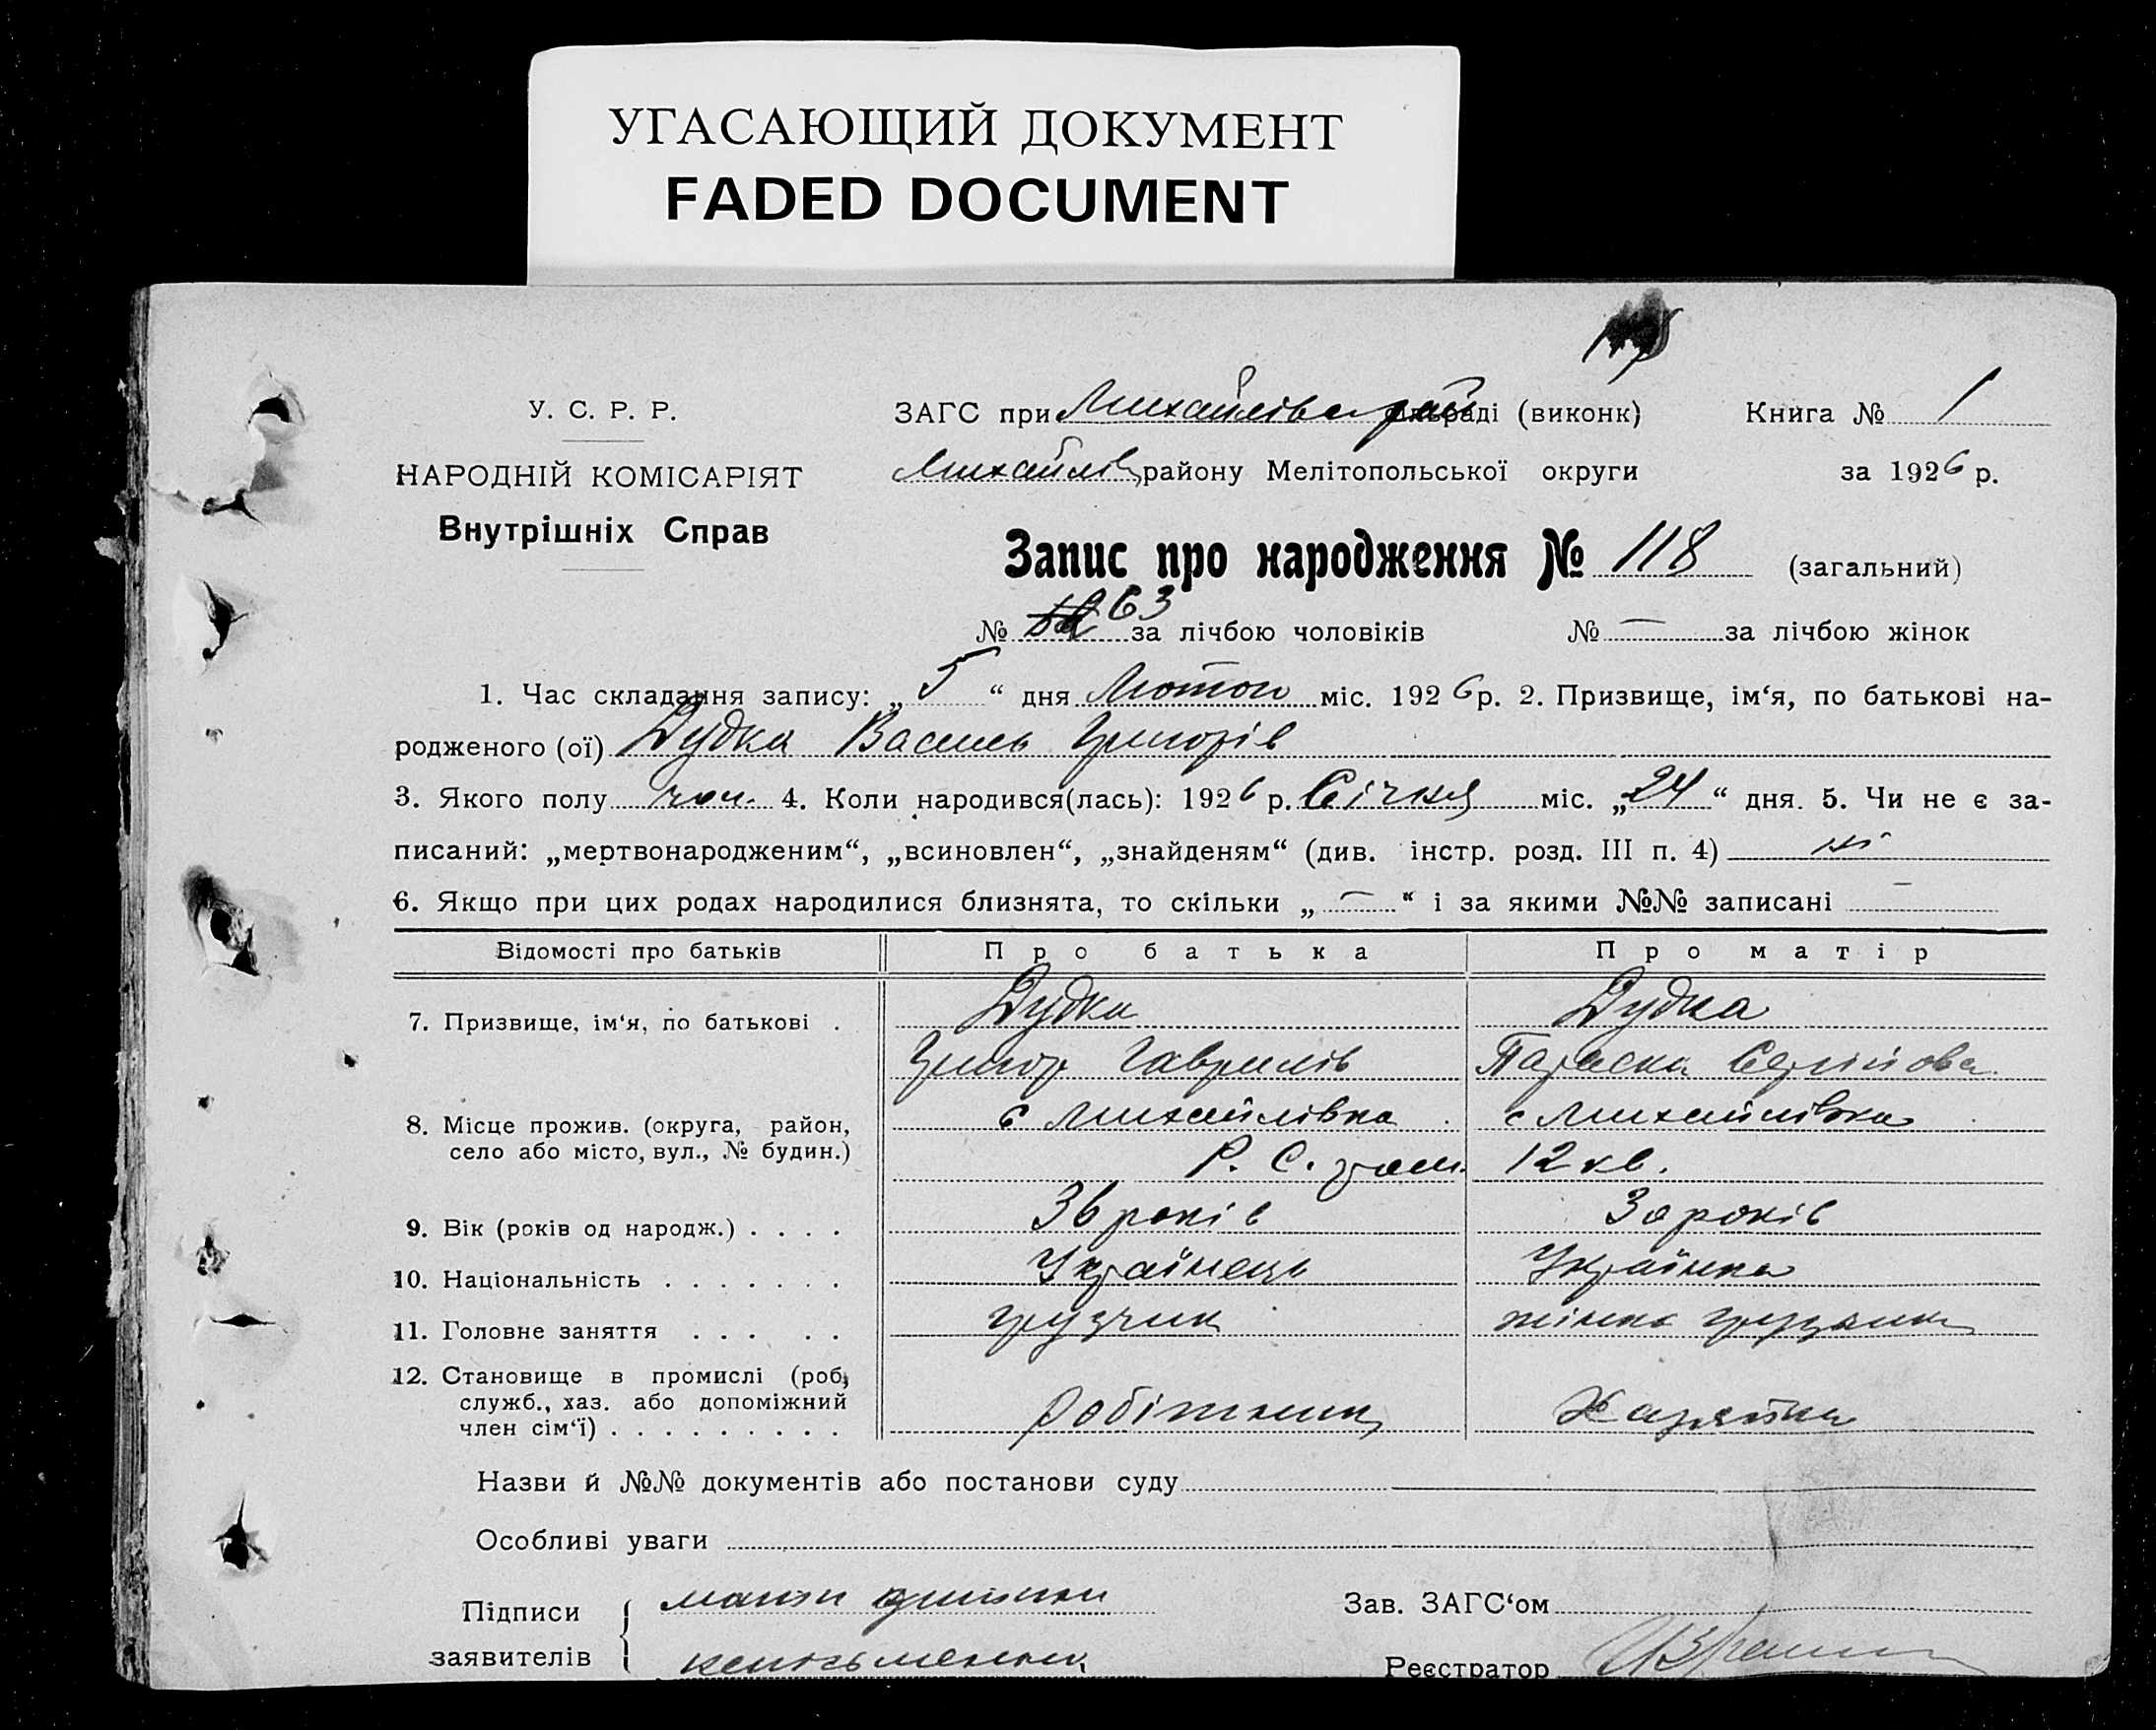 УГАСАЮЩИЙ ДОКУМЕНТ
FADED DOCUMENT
У. С. Р. Р.
НАРОДНІЙ КОМІСАРІЯТ
Внутрішніх Справ
ЗАГС при (виконк) Книга № 1
Михайлів району Мелітопольської округи за 1926 р.
Запис про народження № 118 (загальний)
№ 63 за лічбою чоловіків № — за лічбою жінок
1. Час складання запису: „5“ дня Лютого міс. 1926 р. 2. Призвище, ім‘я, по батькові на-
родженого (ої) Дудка Василь Григорів
3. Якого полу чол. 4. Коли народився(лась): 1926 р. Січня міс. „24“ дня. 5. Чи не є за-
писаний: „мертвонародженим“, „всиновлен“, „знайденям“ (див. інстр. розд. III п. 4) ні
6. Якщо при цих родах народилися близнята, то скільки „—“ і за якими №№ записані —
Відомості про батьків Про батька Про матір
7. Призвище, ім‘я, по батькові . Дудка Дудка
Григор Гаврилів Параска Сергійова
8. Місце прожив. (округа, район, с Михайлівка с Михайлівка
село або місто, вул., № будин.) Р. С. 12 кв.
9. Вік (років од народж.) . . . . 36 років 30 років
10. Національність . . . . . . . Українець Українка
11. Головне заняття . . . . . грузчик жінка грузчика
12. Становище в промислі (роб,
служб., хаз. або допоміжний робітник Хазяйка
член сім‘ї) . . . . . . . . .
Назви й №№ документів або постанови суду
Особливі уваги
Підписи мати Зав. ЗАГС‘ом
заявителів Реєстратор